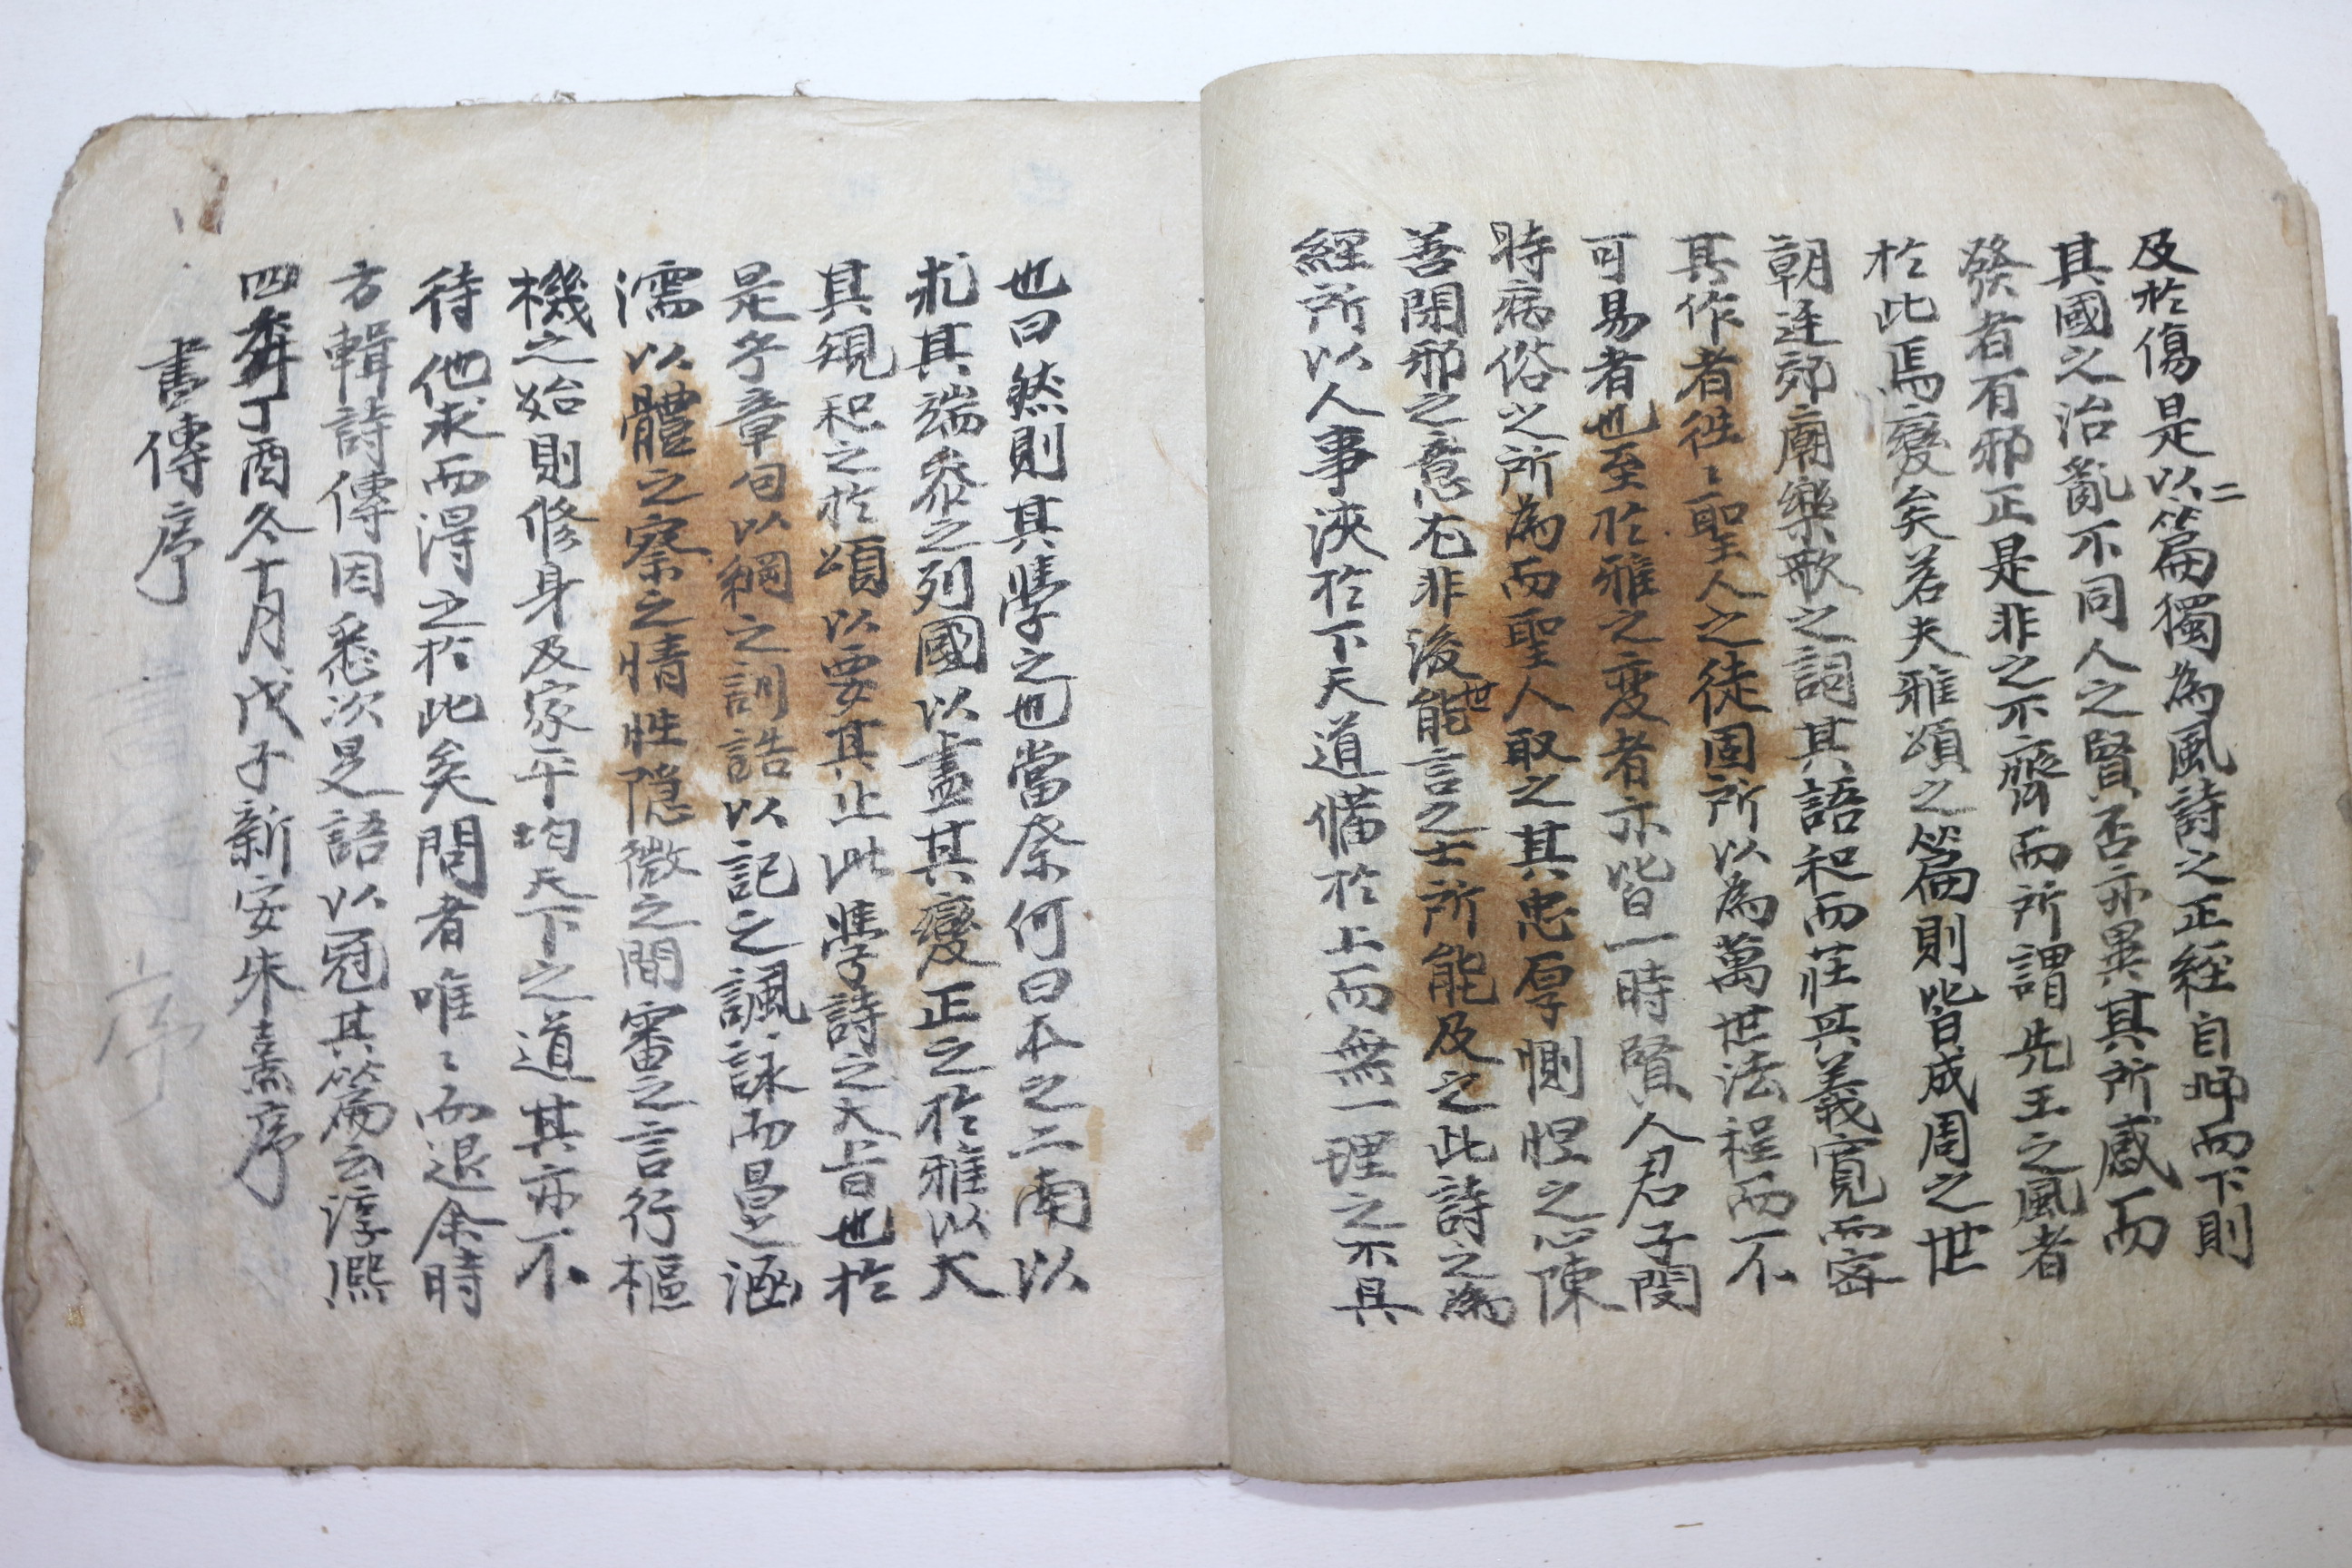 及於傷是以二篇獨為風詩之正経自邶而下則
其國之治亂不同人之賢否亦異其所感而
發者有邪正是非之不齊而所謂先王之風者
於此焉變矣若夫雅頌之篇則皆成周之世
朝廷郊廟樂歌之詞其語和而莊其義寬而密
其作者徃〻聖人之徒固所以為萬世法程而不
可易者也至於雅之変者亦皆一時賢人君子閔
時病俗之所為而聖人取之其忠厚惻怛之心陳
善閉邪之意尤非後世能言之士所能及之此詩之為
経所以人事浹於下天道備於上而無一理之不具
也曰然則其學之也當奈何曰本之二南以
求其端參之列國以盡其變正之於雅以大
其規和之於頌以要其止此學詩之大旨也於
是乎章句以綱之訓誥以記之諷詠而昌之涵
濡以體之察之情性隱微之間審之言行樞
機之始則修身及家平均天下之道其亦不
待他求而淂之於此矣問者唯〻而退余時
方輯詩傳因悉次是語以冠其篇云淳熙
四年丁酉冬十月戊子新安朱熹序
書傳序
序